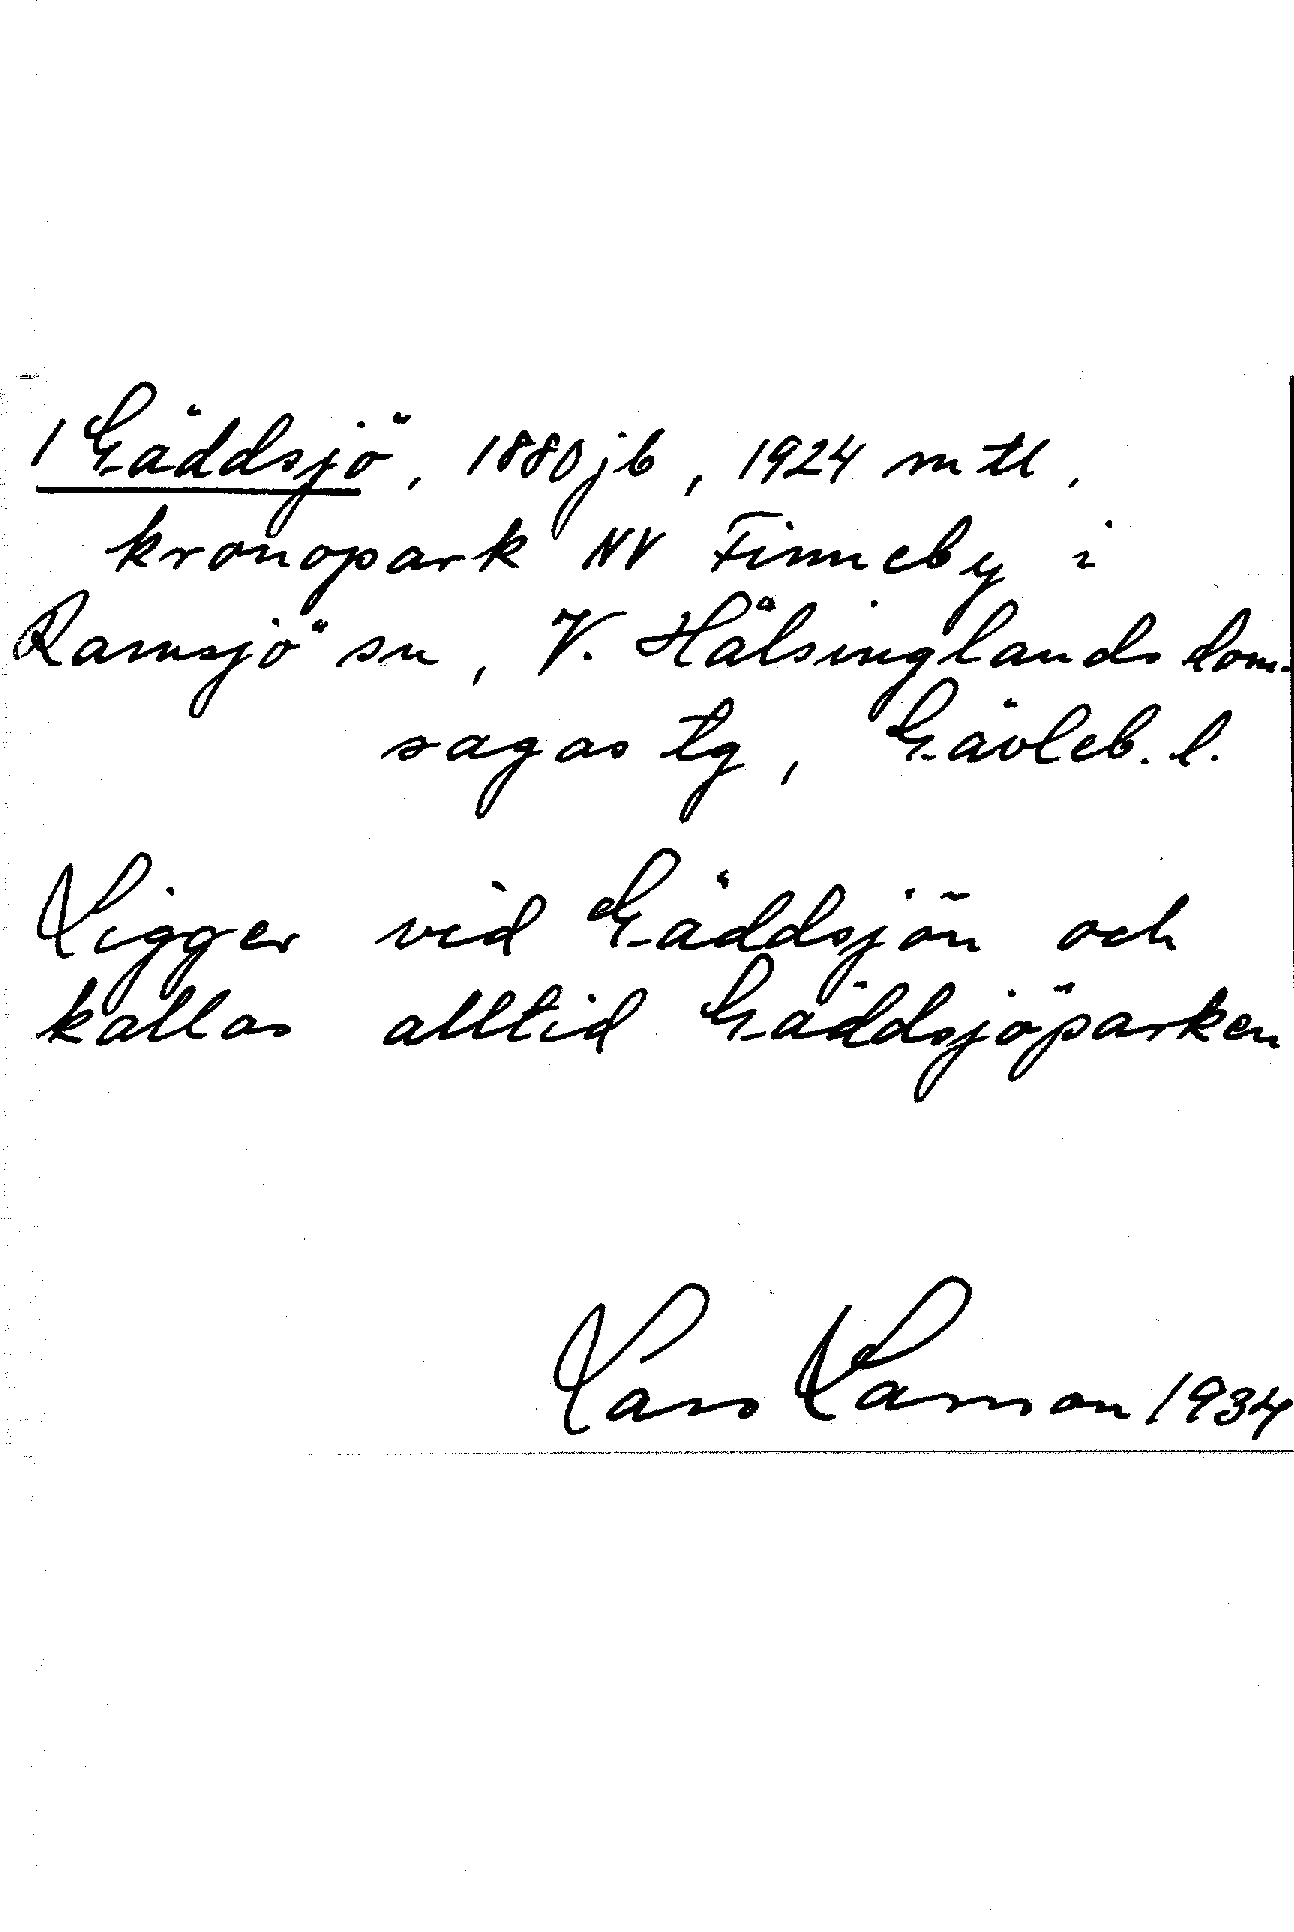 1 Gäddsjö, 1880 jb, 1924 mtl,
kronopark NV Finneby i
Ramsjö sn, V. Hälsinglands dom-
sagas tg, Gävleb. l.
Ligger vid Gäddsjön och
kallas alltid Gäddsjöparken
Lars Larsson 1934